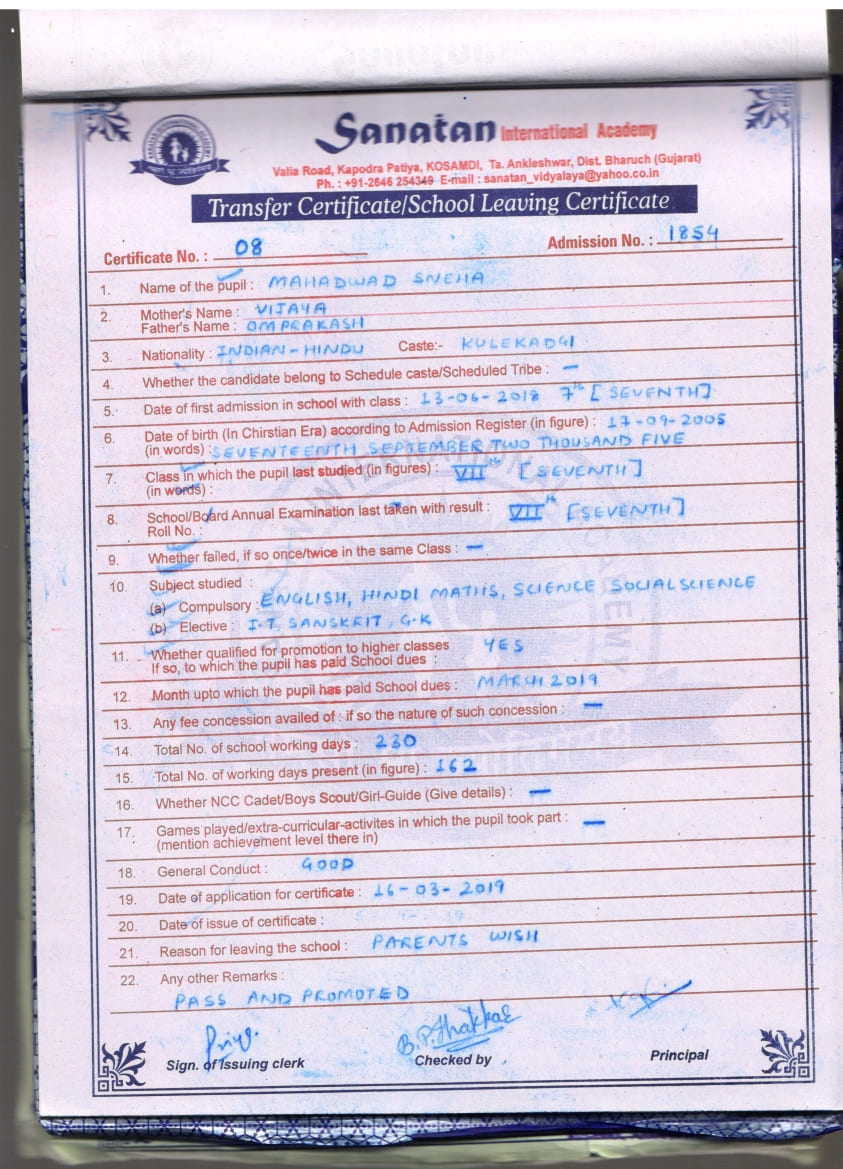 Sanatan International Academy
Valia Road, Kapodra Patiya, KOSAMDI, Ta. Ankleshwar, Dist. Bharuch (Gujarat)
Ph. : +91-2646 254349 E-mail : sanatan_vidyalaya@yahoo.co.in
Transfer Certificate/School Leaving Certificate
Certificate No. : 08 Admission No. : 1854
1. Name of the pupil : MAHADWAD SNEHA
2. Mother's Name : VIJAYA
Father's Name : OMPRAKASH
3. Nationality : INDIAN-HINDU Caste:- KULEKADGI
4. Whether the candidate belong to Schedule caste/Scheduled Tribe : —
5. Date of first admission in school with class : 13-06-2018 7th [SEVENTH]
6. Date of birth (In Chirstian Era) according to Admission Register (in figure) : 17-09-2005
(in words) : SEVENTEENTH SEPTEMBER TWO THOUSAND FIVE
7. Class in which the pupil last studied (in figures) : VIIth [SEVENTH]
(in words) :
8. School/Board Annual Examination last taken with result : VIIth [SEVENTH]
Roll No. :
9. Whether failed, if so once/twice in the same Class : —
10. Subject studied :
(a) Compulsory : ENGLISH, HINDI MATHS, SCIENCE SOCIAL SCIENCE
(b) Elective : I.T, SANSKRIT, G.K
11. Whether qualified for promotion to higher classes YES
If so, to which the pupil has paid School dues :
12. Month upto which the pupil has paid School dues : MARCH 2019
13. Any fee concession availed of : if so the nature of such concession : —
14. Total No. of school working days : 230
15. Total No. of working days present (in figure) : 162
16. Whether NCC Cadet/Boys Scout/Girl-Guide (Give details) : —
17. Games played/extra-curricular-activites in which the pupil took part : —
(mention achievement level there in)
18. General Conduct : GOOD
19. Date of application for certificate : 16-03-2019
20. Date of issue of certificate :
21. Reason for leaving the school : PARENTS WISH
22. Any other Remarks :
PASS AND PROMOTED
B.P.Thakkar
Sign. of Issuing clerk Checked by Principal